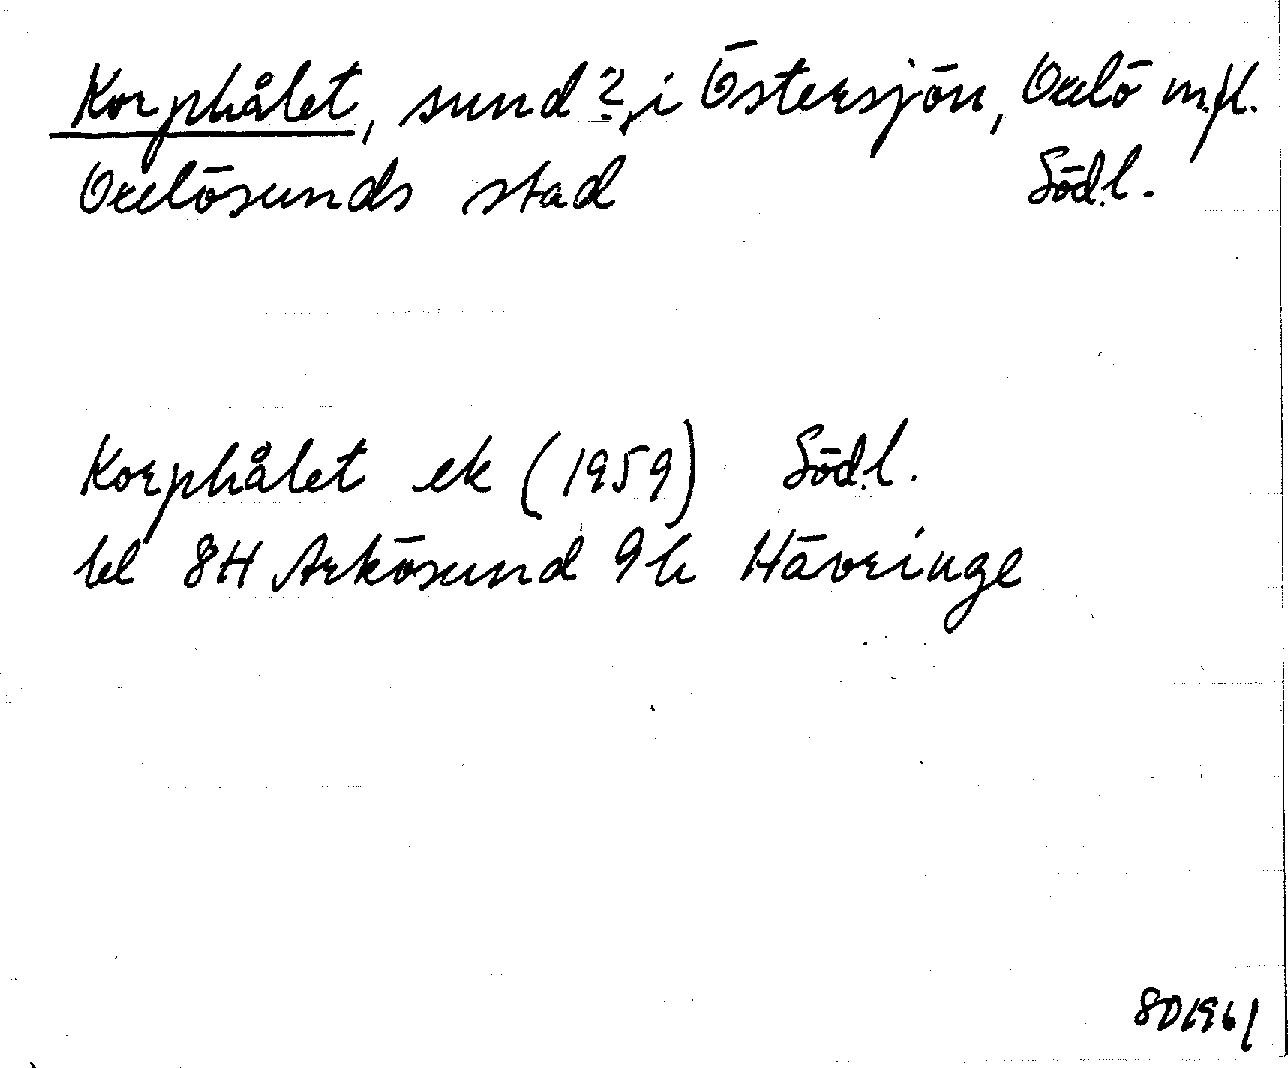 Korphålet, sund?, i Östersjön, Oxelö m.fl.
Oxelösunds stad Södl.
Korphålet ek (1959) Södl.
bl 8H Arkösund 9h Hävringe
SD 1961